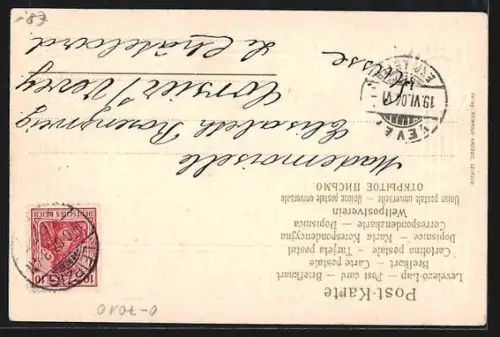 Post-Karte
Levelező-Lap — Post card — Briefkaart
Brefkort — Carte postale
Cartolina postale — Tarjeta postal
Dopisnice — Karta Korespondencyjna
Correspondenzkarte — Dopisnica
Weltpostverein
Union postale universelle — Unione postale universale
ОТКРЫТОЕ ПИСЬМО
Mademoiselle
Elisabeth
Corsier / Vevey
Le Châtelard
Suisse
DEUTSCHES REICH
10 10
LEIPZIG
VEVEY
19.VI.04
0-7010